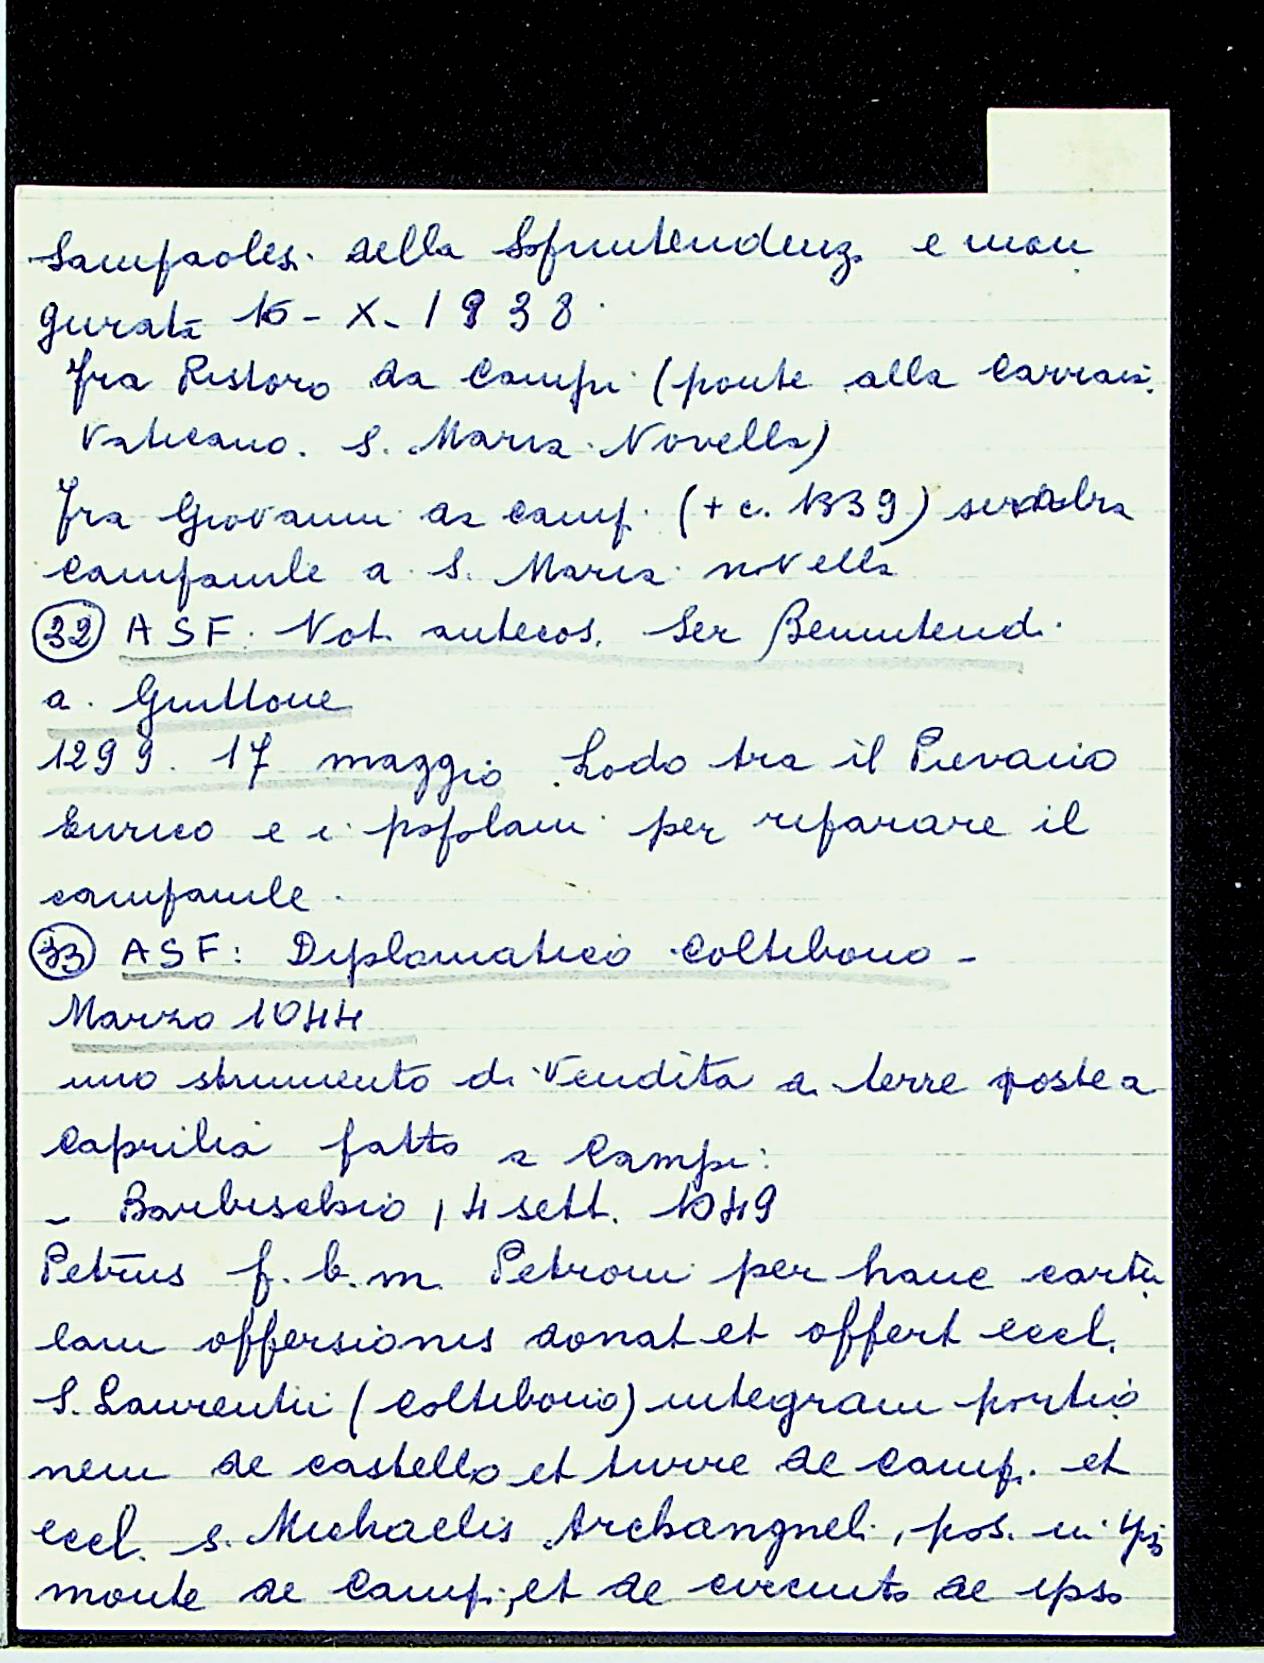 Sampaolesi della Sopruntendenz. e inau
gurata 16 - X - 1938.
Fra Ristoro da Campi (ponte alla Carraia.
Vaticano. S. Maria Novella)
Fra Giovanni da Campi (+ c. 1339)
campanile a S. Maria novella
(32) ASF. Not. antecos. Ser Benintendi
a. Guittone
1299. 17 maggio. Lodo tra il Pievano
Enrico e i popolani per riparare il
campanile.
(33) ASF: Diplomatico Coltibono -
Marzo 1044
uno strumento di vendita a terre poste a
Caprilia fatto a Campi:
- Barbischio, 4 sett. 1049
Petrus f. b. m. Petroni per hanc cartu
lam offersionis donat et offert eccl.
S. Laurentii (Coltibono) integram portio
nem de castello et turre de Campi et
eccl. s. Michaelis Archangneli, pos. in
monte de Campi, et de circuito de ipso